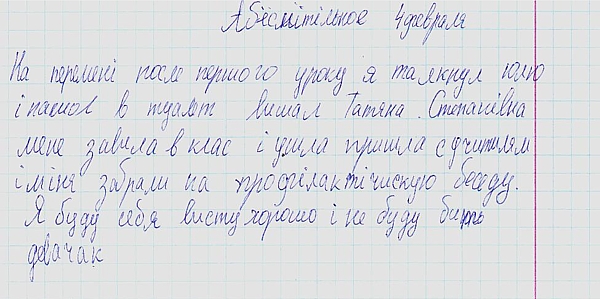 Абіеснітільное 4 февраля
На перемені после першого уроку я талкнул юлю
і пашол в туалєт вишал Татяна. Степанівна
мене завила в клас і ушла пришла с учитилям
і міня забрали на профілактічискую беседу.
Я буду себя висту хорошо і не буду бить
девачак